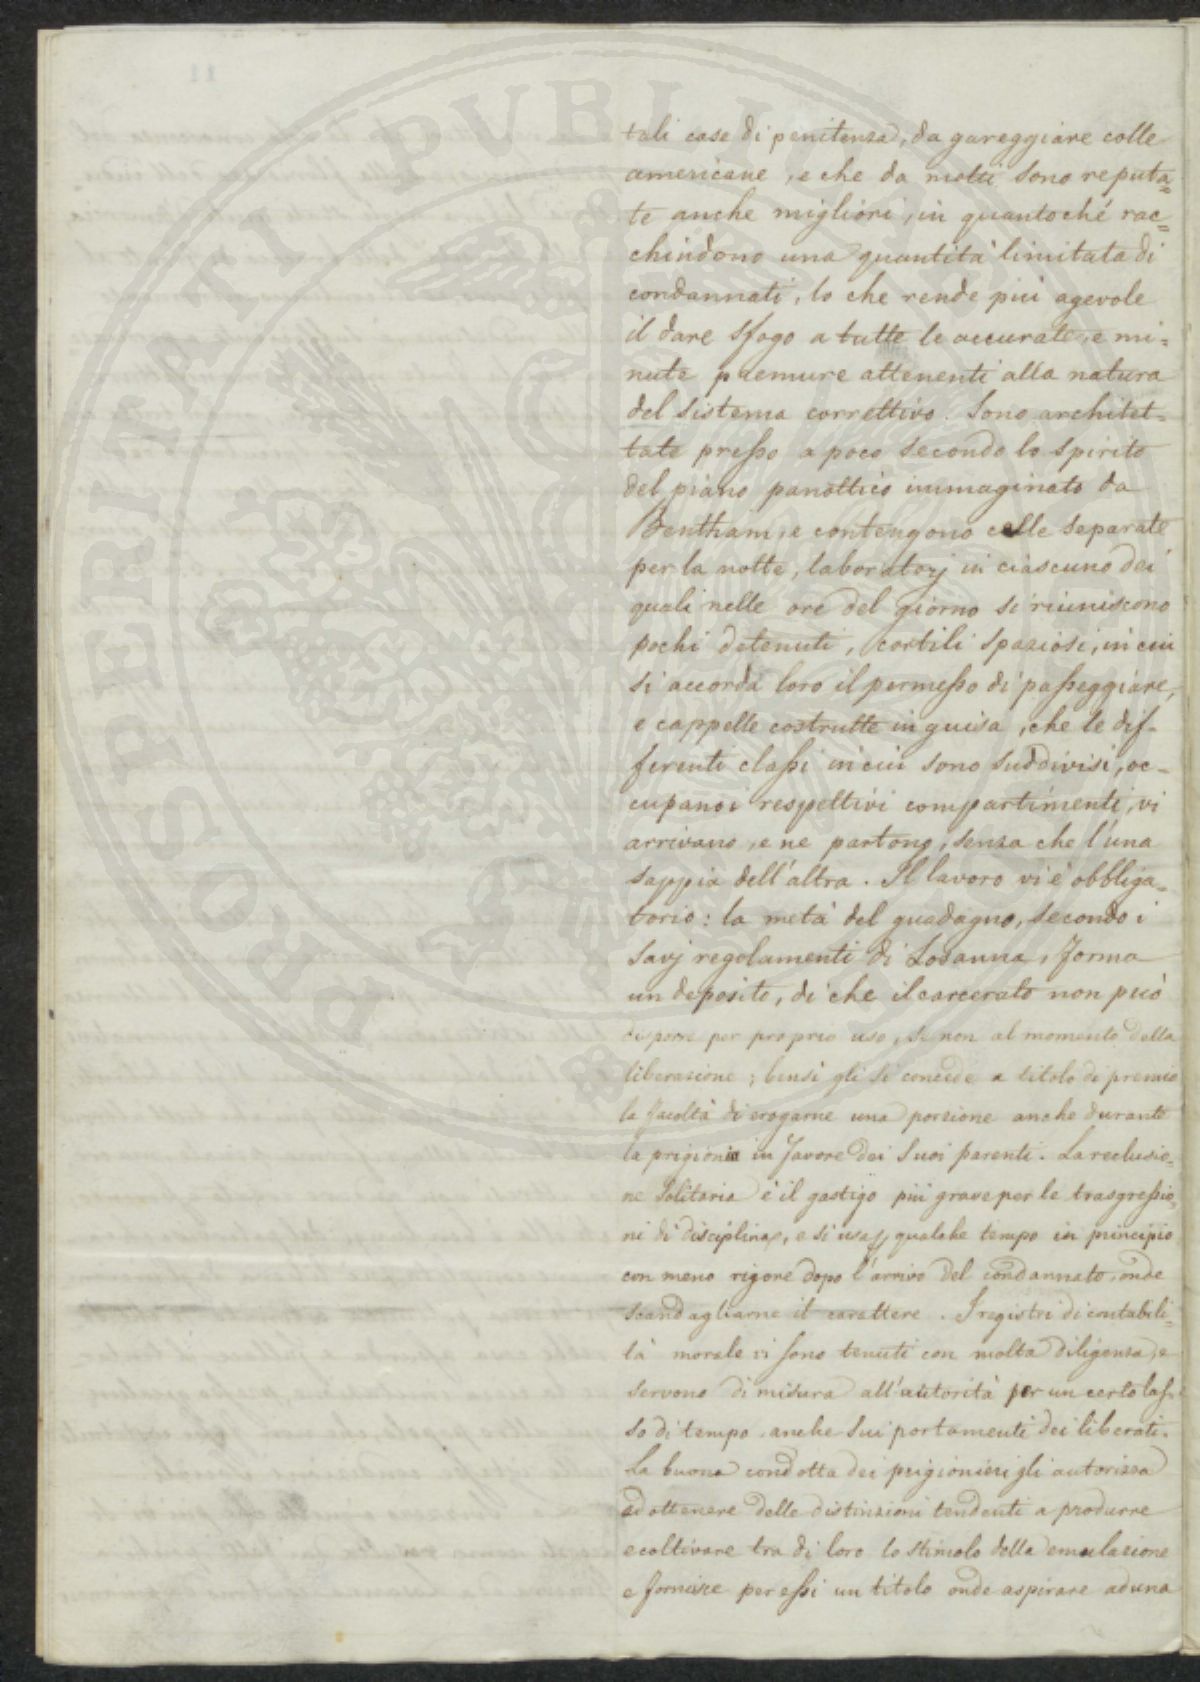 tali case di penitenza, da gareggiare colle
americane, e che da molti sono reputa=
te anche migliori, in quantoché rac=
chiudono una quantità limitata di
condannati, lo che rende più agevole
il dare sfogo a tutte le accurate, e mi=
nute premure attenenti alla natura
del sistema correttivo. Sono architet=
tate presso a poco secondo lo spirito
del piano panottico immaginato da
Bentham, e contengono celle separate
per la notte, laboratorj in ciascuno dei
quali nelle ore del giorno si riuniscono
pochi detenuti, cortili spaziosi, in cui
si accorda loro il permesso di passeggiare,
e cappelle costrutte in guisa, che le dif=
ferenti classi in cui sono suddivisi, oc=
cupano i respettivi compartimenti, vi
arrivano, e ne partono, senza che l'una
sappia dell'altra. Il lavoro vi è obbliga=
torio: la metà del guadagno, secondo i
savj regolamenti di Losanna, forma
un deposito, di che il carcerato non può
disporre per proprio uso, se non al momento della
liberazione; bensì gli si concede a titolo di premio
la facoltà di erogarne una porzione anche durante
la prigionia in favore dei suoi parenti. La reclusio=
ne solitaria è il gastigo più grave per le trasgressio=
ni di disciplina, e si usa qualche tempo in principio
con meno rigore dopo l'arrivo del condannato, onde
scandagliarne il carattere. I registri di contabili=
tà morale vi sono tenuti con molta diligenza, e
servono di misura all'autorità per un certo las=
so di tempo anche sui portamenti dei liberati.
La buona condotta dei prigionieri gli autorizza
ad ottenere delle distinzioni tendenti a produrre
e coltivare tra di loro lo stimolo della emulazione
e fornisce per essi un titolo onde aspirare ad una
PROSPERITATI PUBLICAE
11